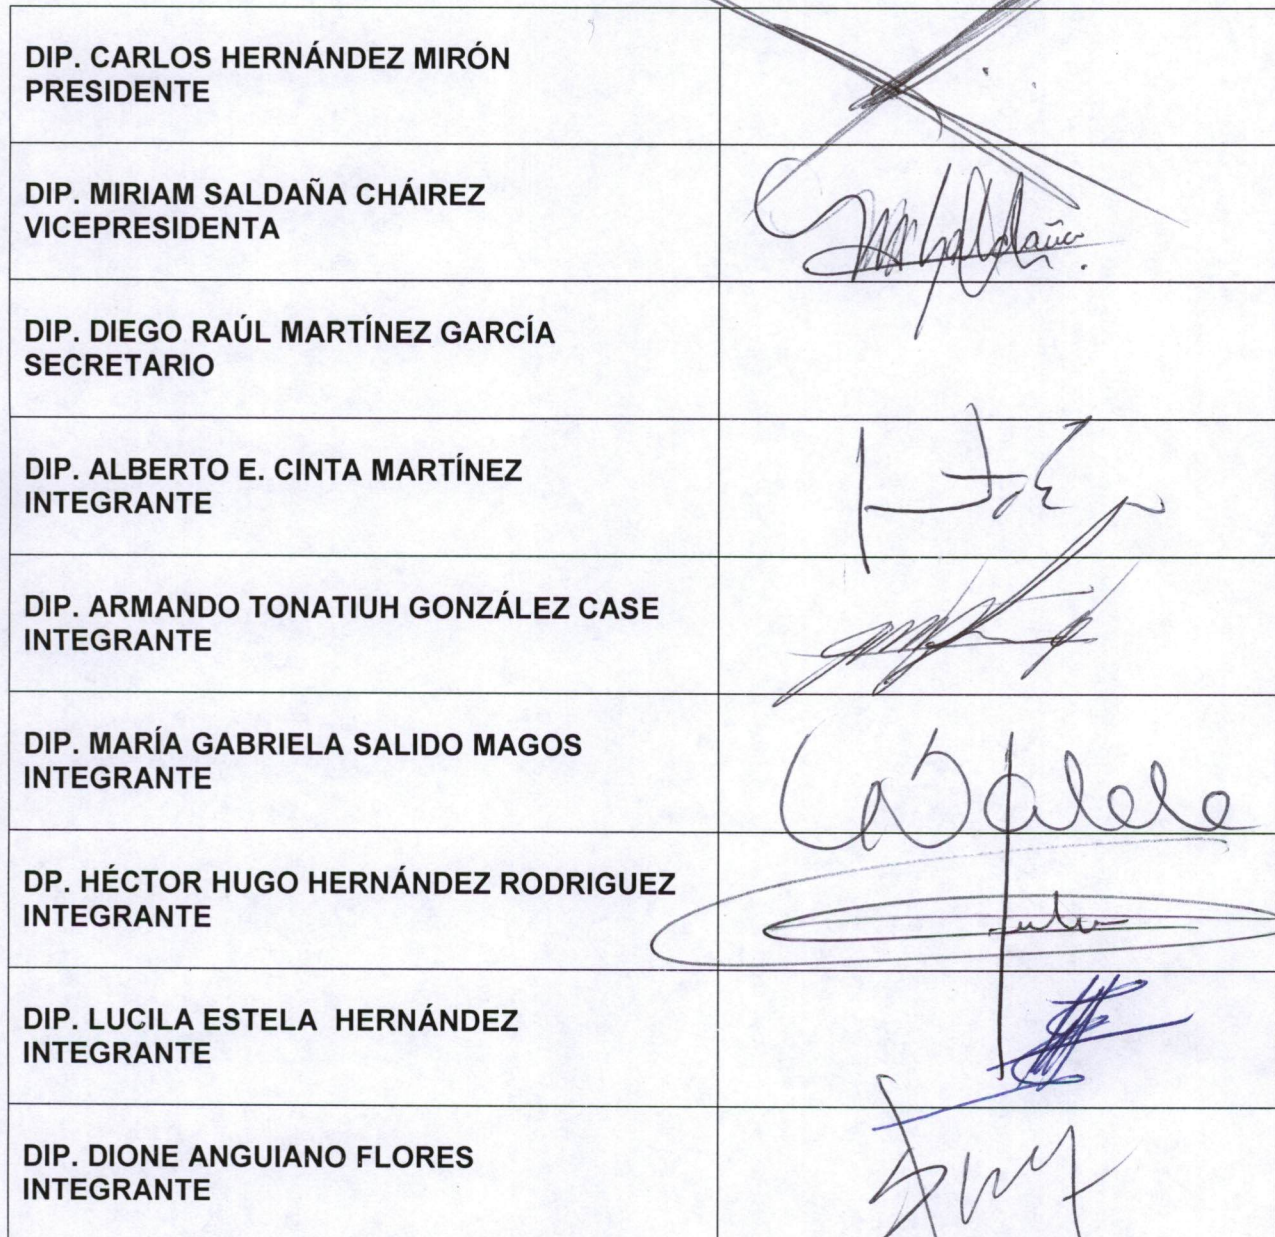 DIP. CARLOS HERNÁNDEZ MIRÓN
PRESIDENTE
DIP. MIRIAM SALDAÑA CHÁIREZ
VICEPRESIDENTA
DIP. DIEGO RAÚL MARTÍNEZ GARCÍA
SECRETARIO
DIP. ALBERTO E. CINTA MARTÍNEZ
INTEGRANTE
DIP. ARMANDO TONATIUH GONZÁLEZ CASE
INTEGRANTE
DIP. MARÍA GABRIELA SALIDO MAGOS
INTEGRANTE
DP. HÉCTOR HUGO HERNÁNDEZ RODRIGUEZ
INTEGRANTE
DIP. LUCILA ESTELA HERNÁNDEZ
INTEGRANTE
DIP. DIONE ANGUIANO FLORES
INTEGRANTE